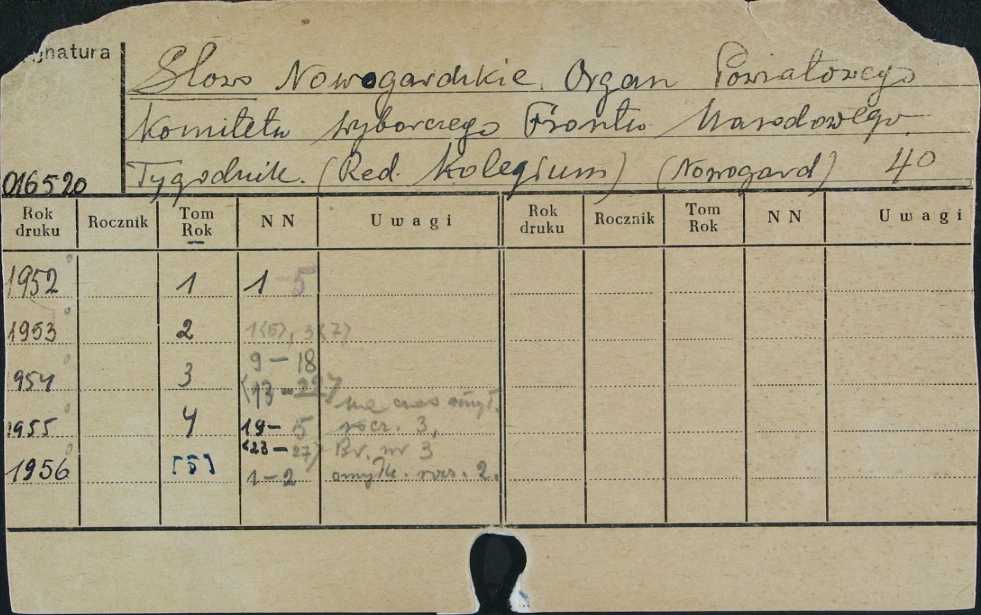 ygnatura
Słowo Nowogardzkie. Organ Powiatowego
Komitetu Wyborczego Frontu Narodowego.
Tygodnik. (Red. Kolegium) (Nowogard) 40
016520
Rok druku Rocznik Tom Rok NN Uwagi Rok druku Rocznik Tom Rok NN Uwagi
1952 1 1 5
1953 2 1(5), 3(7)
9-18
954 3 (13-22)
na czas omył.
1955 4 19-15 rocz. 3,
(23-27) Br. nr 3
1956 [5] 1-2 omyłk. rocz. 2.